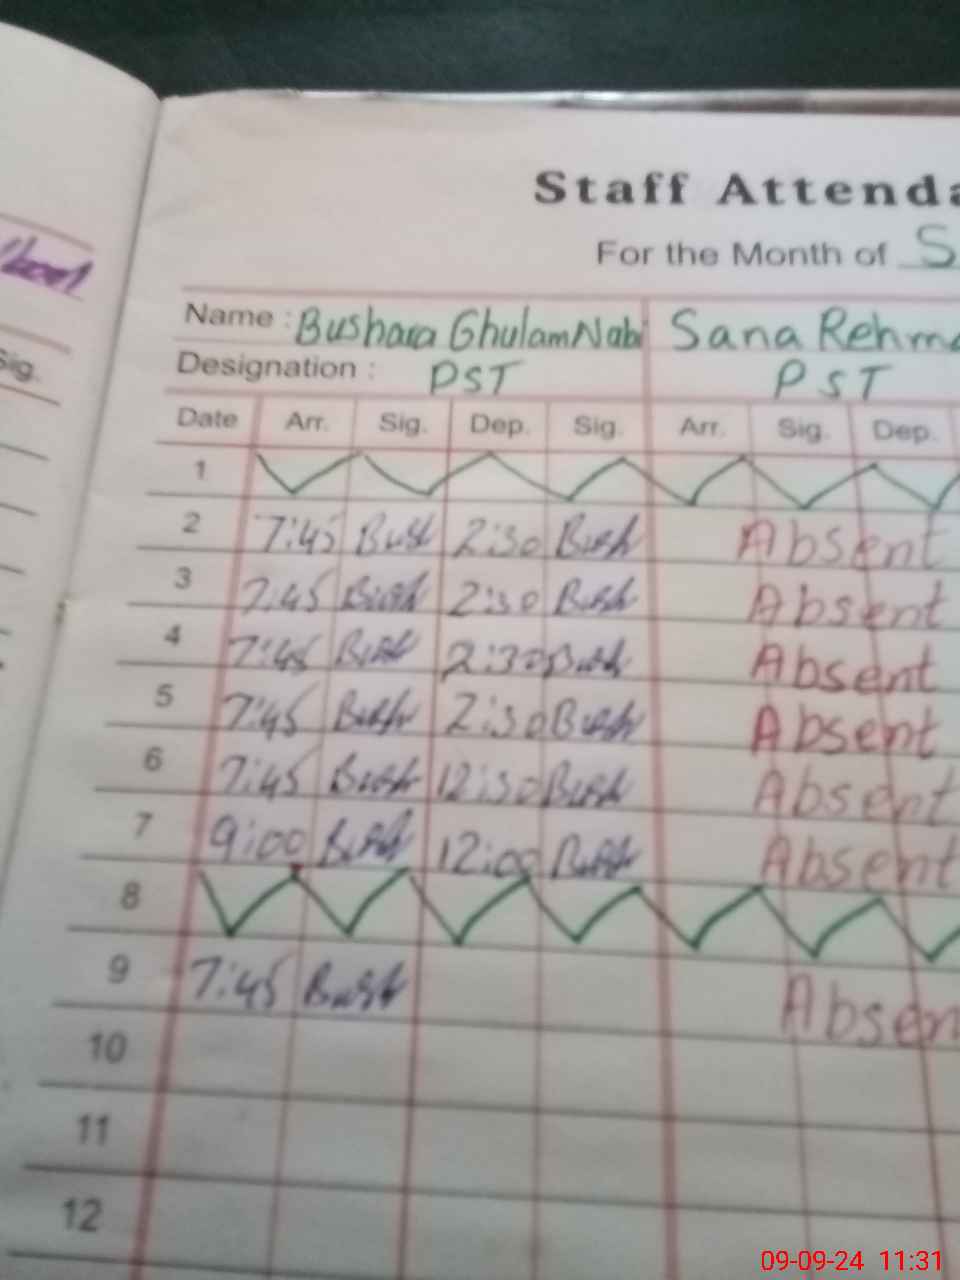 Staff Attenda
For the Month of S
Sig.
Name : Bushara Ghulam Nabi Sana Rehma
Designation : PST PST
Date Arr. Sig. Dep. Sig. Arr. Sig. Dep.
1
2 7:45 Bush 2:30 Bush Absent
3 7:45 Bush 2:30 Bush Absent
4 7:45 Bush 2:30 Bush Absent
5 7:45 Bush 2:30 Bush Absent
6 7:45 Bush 12:30 Bush Absent
7 9:00 Bush 12:00 Bush Absent
8
9 7:45 Bush Absen
10
11
12
09-09-24 11:31